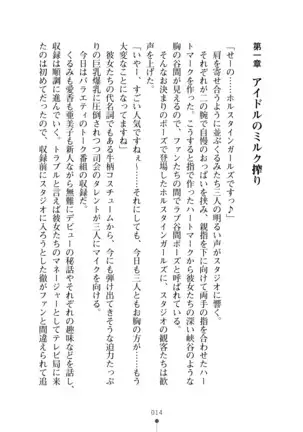 第一章 アイドルのミルク搾り
「せーの……ホルスタインガールズですっ♪」
肩を寄せ合うように並ぶくるみたち三人の明るい声がスタジオに響く。
それぞれが二の腕で自慢のおっぱいを挟み、親指を下に向けて両手の指を合わせたハートマークを作った。こうすると指で作ったハートマークから彼女たちの深い峡谷のような胸の谷間が見えることから、ファンたちの間でラブ谷間ポーズと呼ばれている。
そんなお決まりのポーズで登場したホルスタインガールズに、スタジオの観客は歓声を上げた。
「いやー、すごい人気ですねぇ～……それにしても、今日も三人ともお胸の方が……もう大変なことになってますね」
彼女たちの代名詞でもある牛柄コスチュームから、今にも弾け出てきそうな迫力たっぷりの巨乳爆乳に圧倒されつつ司会のタレントが三人にマイクを向ける。
今日はバラエティのトーク番組の収録だ。
くるみも愛香も亜美子も新人ながら無難にデビューの秘話やそれぞれの趣味などを話し、収録は順調に進んだ。トラブルと言えば彼女たちのマネージャーとしてテレビ局に来たのは初めてだったので、収録前にスタジオに入ろうとした徹がファンと間違えられて追
014